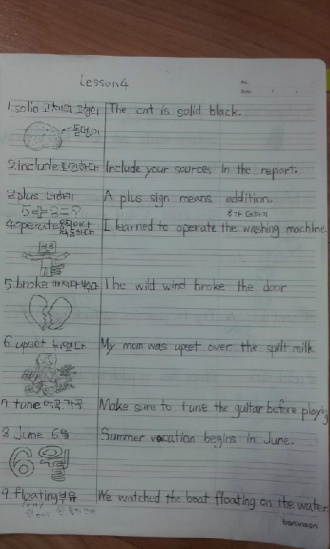 Lesson 4
No.
Date
1. solid 고체의 고형의 The cat is solid black.
돌멩이
2. include 포함하다 Include your sources in the report.
3. plus 더하기 A plus sign means addition.
5+2=?
추가 더하기
4. operate 움직이다 I learned to operate the washing machine.
작동하다
5. broke The wild wind broke the door
6. upset My mom was upset over the spilt milk
7. tune Make sure to tune the guitar before playing
8. June 6월 Summer vacation begins in June.
6월
9. floating 부유 We watched the boat floating on the water.
barunson